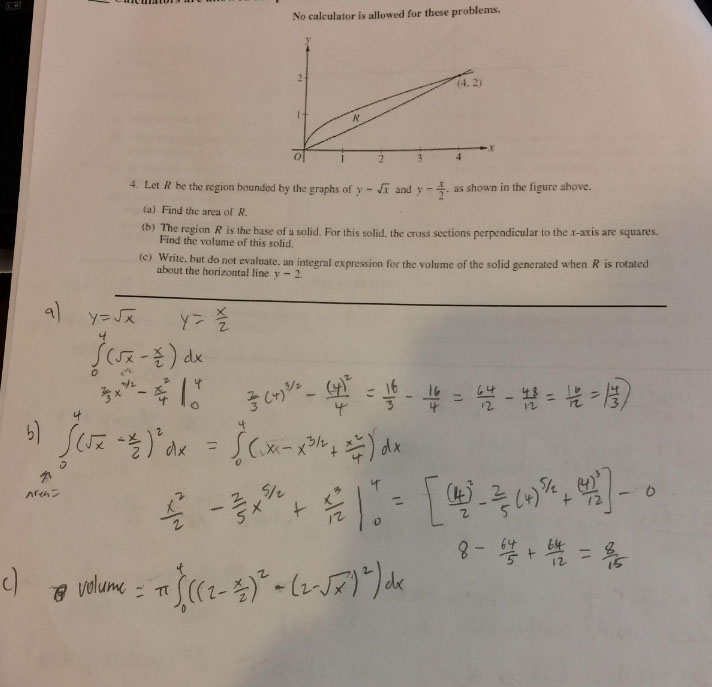 No calculator is allowed for these problems.
y
2
(4, 2)
1
R
O 1 2 3 4 x
4. Let R be the region bounded by the graphs of y = √x and y = x/2, as shown in the figure above.
(a) Find the area of R.
(b) The region R is the base of a solid. For this solid, the cross sections perpendicular to the x-axis are squares.
Find the volume of this solid.
(c) Write, but do not evaluate, an integral expression for the volume of the solid generated when R is rotated
about the horizontal line y = 2.
a) y=√x y= x/2
∫₀⁴(√x - x/2) dx
2/3 x^3/2 - x²/4 |₀⁴ 2/3 (4)^3/2 - (4)²/4 = 16/3 - 16/4 = 64/12 - 48/12 = 16/12 = 4/3
b) ∫₀⁴(√x - x/2)² dx = ∫₀⁴(x - x^3/2 + x²/4) dx
Area=
x²/2 - 2/5 x^5/2 + x³/12 |₀⁴ = [(4)²/2 - 2/5 (4)^5/2 + (4)³/12] - 0
8 - 64/5 + 64/12 = 8/15
c) volume = π∫₀⁴((2-x/2)² - (2-√x)²) dx